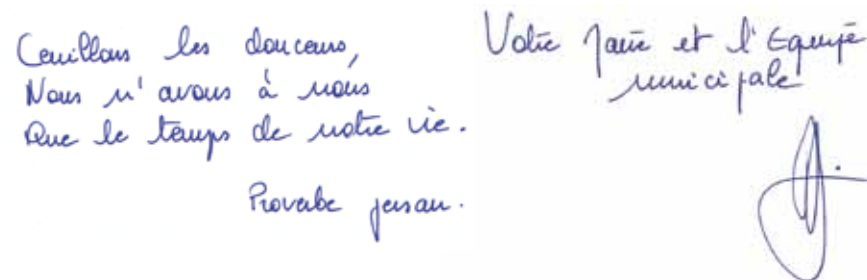 Cueillons les douceurs,
Nous n'avons à nous
Que le temps de notre vie.
Proverbe persan.
Votre Maire et l'Equipe
municipale